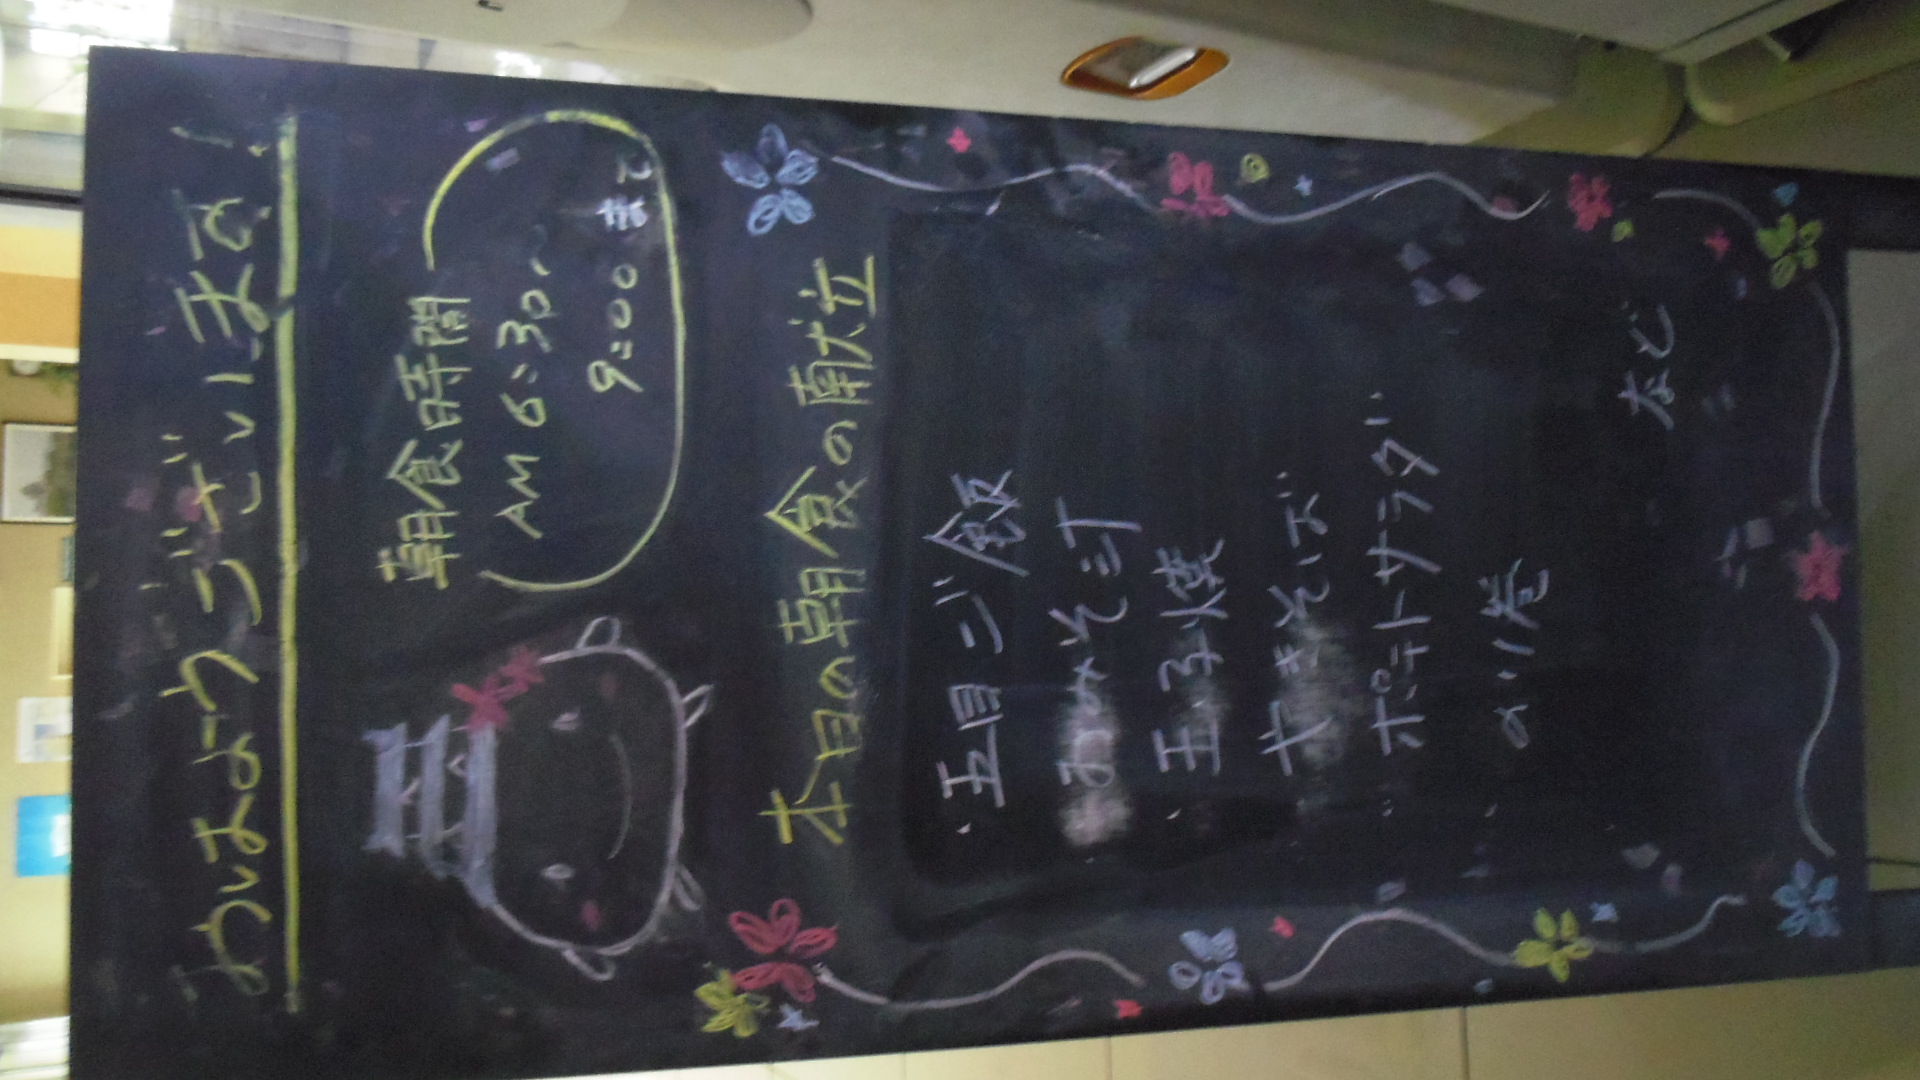 おはようございます!
朝食時間
AM 6:30~
9:00 まで
本日の朝食の献立
・五目ご飯
おみそ汁
・玉子焼
やきそば
・ポテトサラダ
・のり巻
など